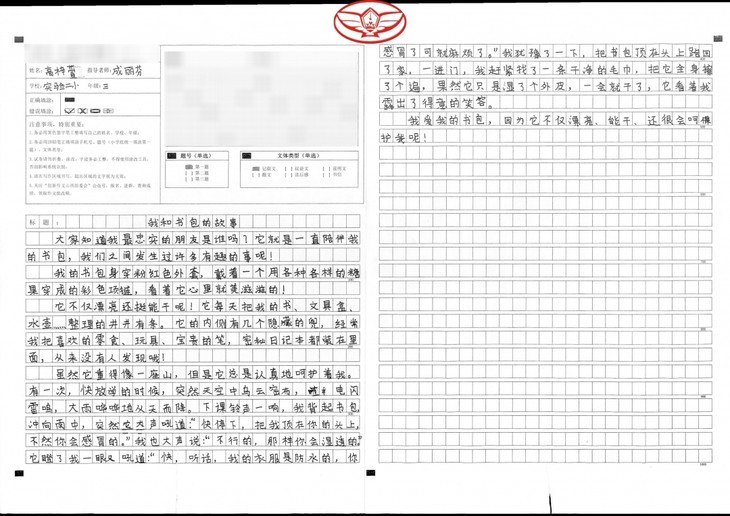 姓名: 指导老师:
学校: 实验二小 年级: 三
正确填涂:
错误填涂:
注意事项,特别重要:
题号(单选)
[ ] 第二题
[ ] 第三题
文体类型(单选)
标 题:
我和书包的故事
大家知道我最忠实的朋友是谁吗?它就是一直陪伴我
的书包,我们之间发生过许多有趣的事呢!
我的书包身穿粉红色外套,戴着一个用各种各样的糖
果穿成的彩色项链,看着它心里就美滋滋的!
它不仅漂亮还挺能干呢!它每天把我的书、文具盒、
水壶……整理的井井有条。它的内侧有几个隐藏的兜,经常
我把喜欢的零食、玩具、宝贵的笔,密秘日记本都装在里
面,从来没有人发现哦!
虽然它重得像一座山,但是它总是认真地呵护着我。
有一次,快放学的时候,突然天空中乌云密布,电闪
雷鸣,大雨哗哗地从天而降。下课铃声一响,我背起书包
冲向雨中,突然它大声吼道:“快停下,把我顶在你的头上,
不然你会感冒的。”我也大声说:“不行的,那样你会湿透的。”
它瞪了我一眼又吼道:“快,听话,我的衣服是防水的,你
感冒了可就麻烦了。”我犹豫了一下,把书包顶在头上跑回
了家,一进门,我赶紧找了一条干净的毛巾,把它全身擦
了个遍,果然它只是湿了个外皮,一会就干了,它看着我
露出了得意的笑容。
我爱我的书包,因为它不仅漂亮、能干、还很会呵
护我呢!